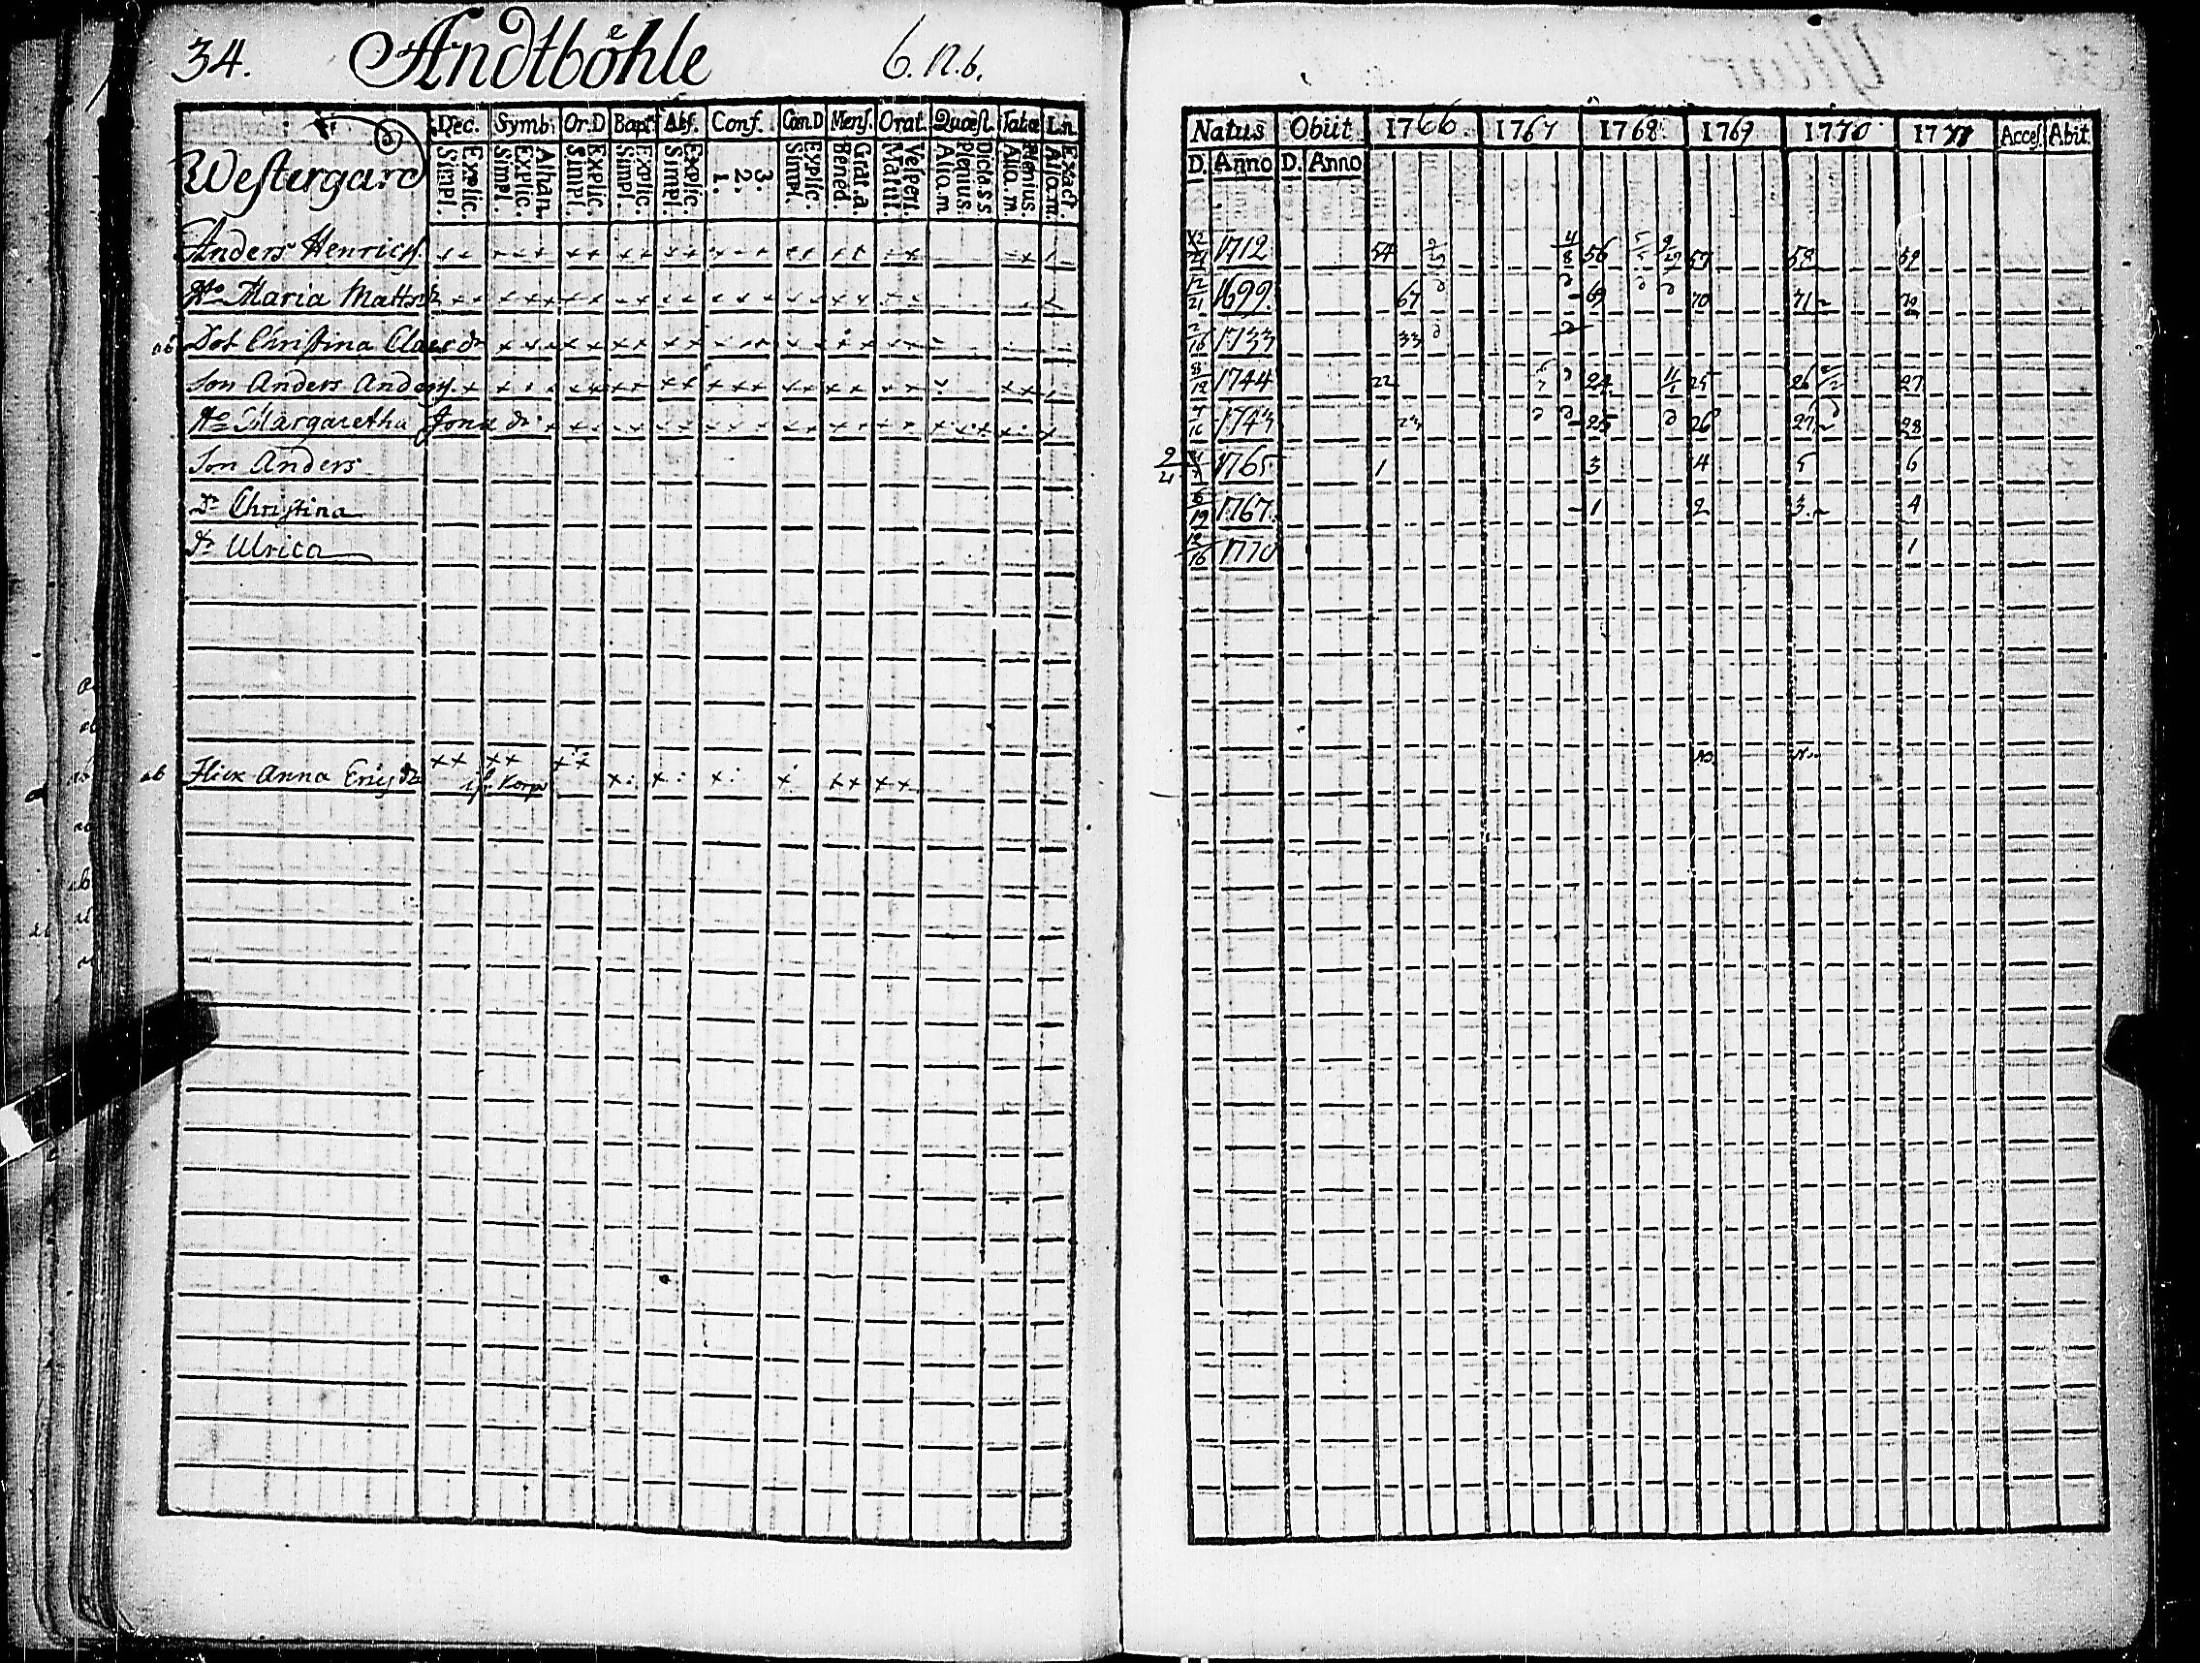 34. Andtböhle 6. N. 6.
Westergard Dec. Symb: Or.D Bapt. Abs. Conf. Cœn.D Mens. Orat. Quæst. Tabœ Ln.
Simpl. Explic. Simpl. Explic. Athan. Simpl. Explic. Simpl. Explic. Simpl. Explic. 1. 2. 3. Simpl. Explic. Bened Grat.a. Matut. Vespert. Aliq.m Plenius. Dicta.s s Aliq.m Plenius. Aliq.m. Exact.
Natus Obiit 1766 1767 1768 1769 1770 1771 Acces. Abit.
D. Anno D. Anno
Anders Henrichs. 1712 54 56 57 58 59
Ho Maria Mattsd 12/21 1699. 67 69 70 71 72
ab Dot Christina Claes dr 1733 33
Son Anders Anders. 8/12 1744 22 24 25 26 27
Ho Margaretha Jons dr 1743 23 25 26 27 28
Son Anders 1765 1 3 4 5 6
Dr Christina 1767. 1 2 3 4
Dr Ulrica 12/16 1770 1
ab Flick Anna Erichs dr